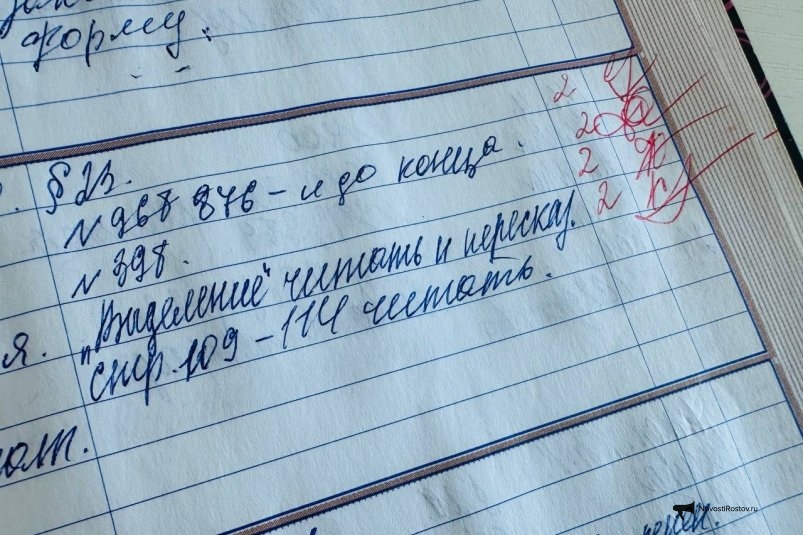 форму.
2
§ 23.
2
№ 868 876 – и до конца.
2
№ 398.
2
я. „Выделение" читать и переcказ.
стр. 109 – 114 читать.
NovostiRostov.ru